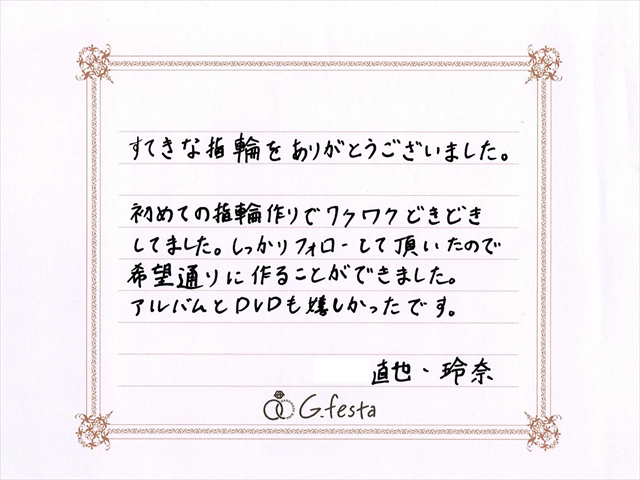 すてきな指輪をありがとうございました。
初めての指輪作りでワクワクどきどき
してました。しっかりフォローして頂いたので
希望通りに作ることができました。
アルバムとDVDも嬉しかったです。
直也・玲奈
G.festa